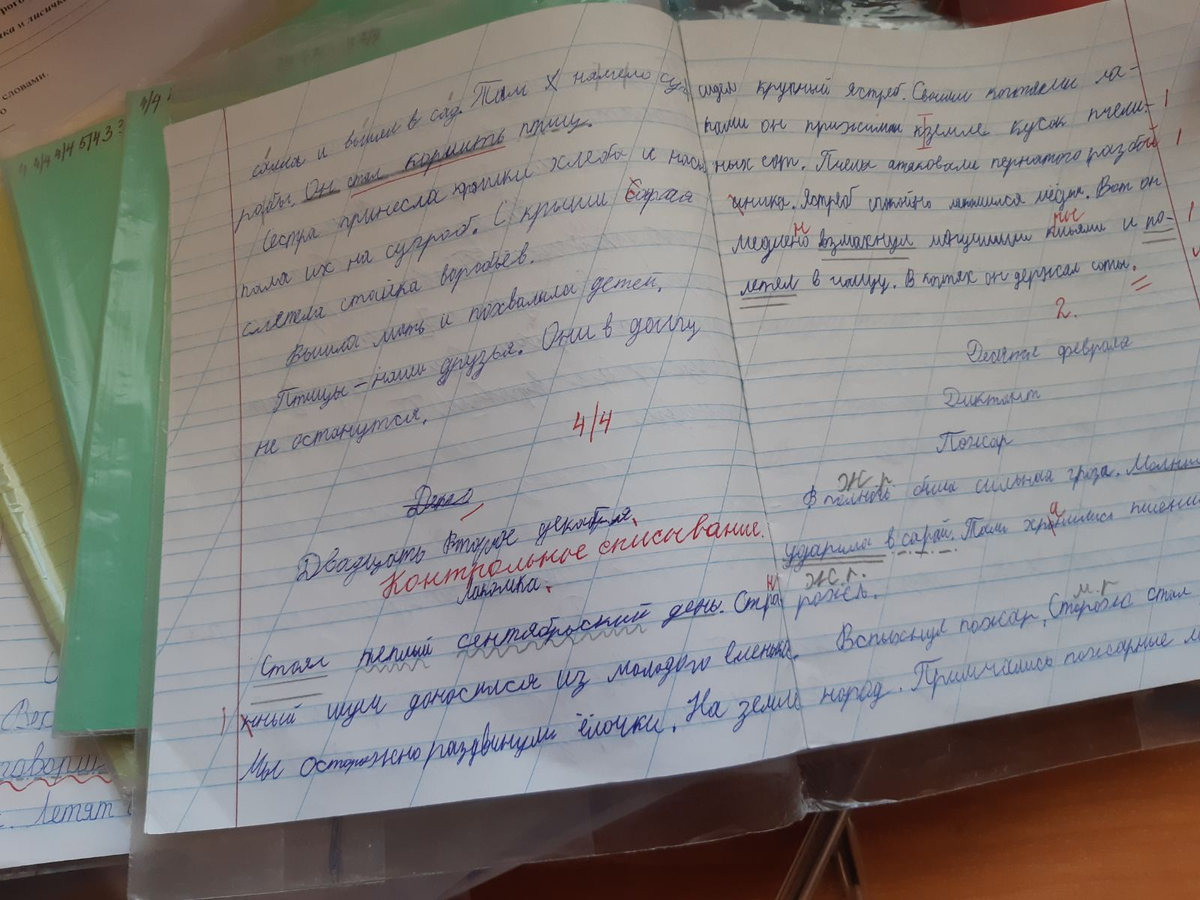 рого
ка и лисичка
словами.
4 4/4 4/4 5/4 3
4/4
и вышли в сад. Там намело суг
робы. Он стал кормить птиц.
Сестра принесла крошки хлеба и насы
пала их на сугроб. С крыши сарая
слетела стайка воробьёв.
Вышла мать и похвалила детей.
Птицы – наши друзья. Они в долгу
не останутся.
4/4
Двадцать второе декабря.
Контрольное списывание.
Лакомка.
Стоял теплый сентябрьский день. Стра
н
1
нный шум доносился из молодого ельника.
Мы осторожно раздвинули ёлочки. На земле
сидел крупный ястреб. Своими когтями ла-
пами он прижимал к земле кусок пчели-
1
ных сот. Пчелы атаковали пернатого разбой
1
ника. Ястреб спокойно лакомился мёдом. Вот он
н
медлено взмахнул могучими крыльями и по-
1
летел в чащу. В когтях он держал соты.
2.
Десятое февраля
Диктант
Пожар
ж.р.
В полночь была сильная гроза. Молния
а
ударила в сарай. Там хранилась пшени
ж.р.
рожь.
м.р
Вспыхнул пожар. Сторож стал
народ. Примчались пожарные м
Вос
говори
Летят